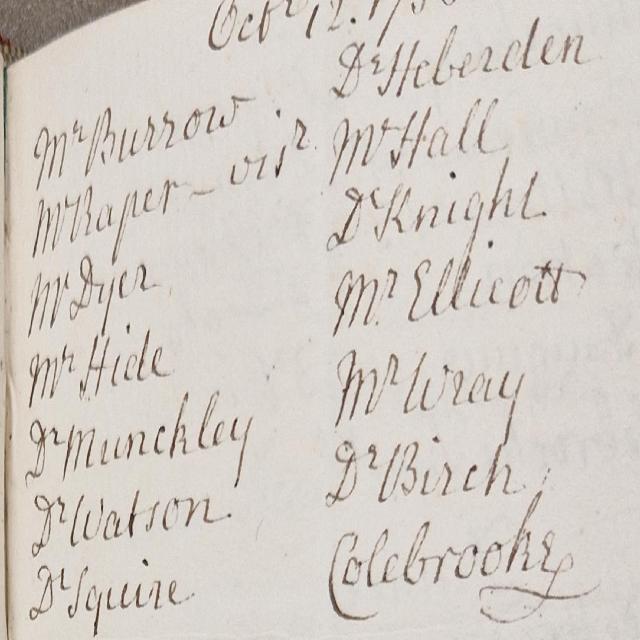 Octr 12. 175
Mr Burrow
Mr Raper - visr
Mr Dyer
Mr Hide
Dr Munckley
Dr Watson
Dr Squire
Dr Heberden
Mr Hall
Dr Knight
Mr Ellicott
Mr Wray
Dr Birch
Colebrooke